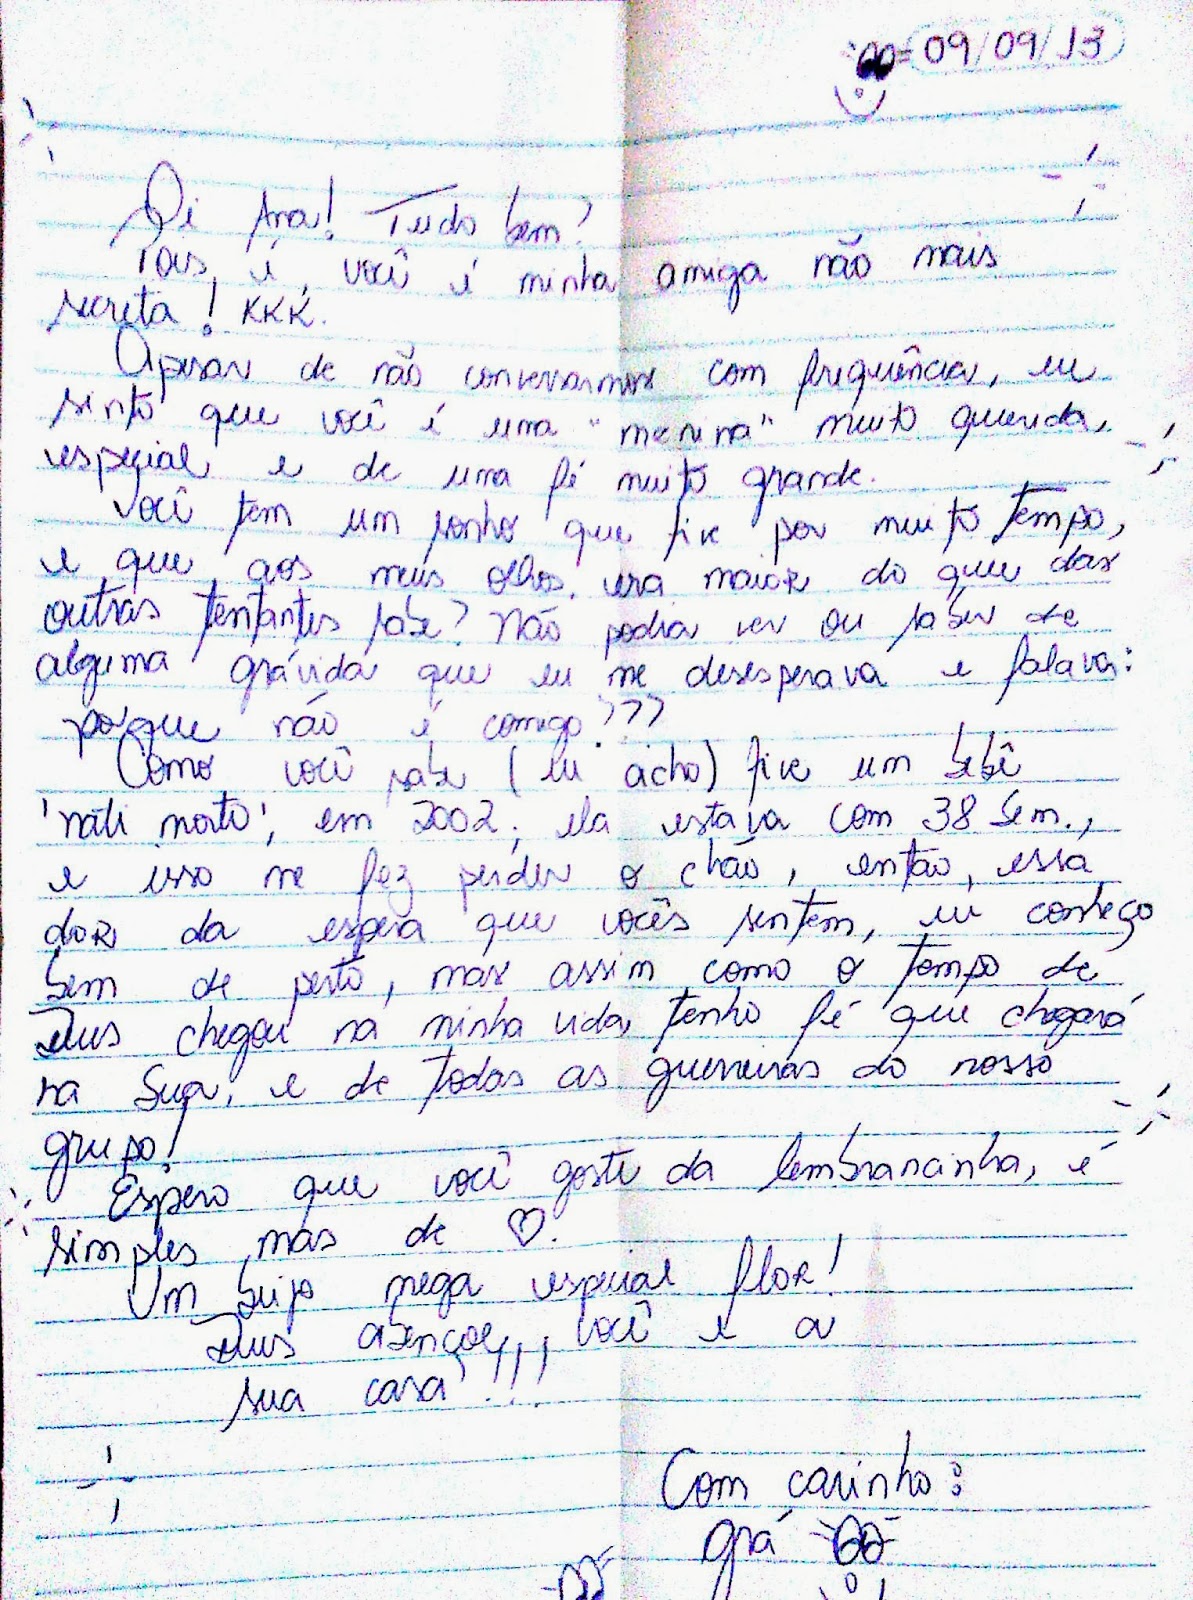 09/09/13
Oi Ana! Tudo bem?
Pois é, você é minha amiga não mais
secreta! KKK.
Apesar de não conversarmos com frequência, eu
sinto que você é uma "menina" muito querida,
especial e de uma fé muito grande.
Você tem um sonho que tive por muito tempo,
e que aos meus olhos, era maior do que das
outras tentantes sabe? Não podia ver ou saber de
alguma grávida que eu me desesperava e falava:
porque não é comigo???
Como você sabe (eu acho) tive um bebê
'nati morto', em 2002, ela estava com 38 sem.,
e isso me fez perder o chão, então, essa
dor da espera que vocês sentem, eu conheço
bem de perto, mas assim como o tempo de
Deus chegou na minha vida, tenho fé que chegará
na sua, e de todas as guerreiras do nosso
grupo!
Espero que você goste da lembrancinha, é
simples, mas de ♡.
Um beijo mega especial flor!
Deus abençoe,,, você e a
sua casa!!!
Com carinho:
Grá